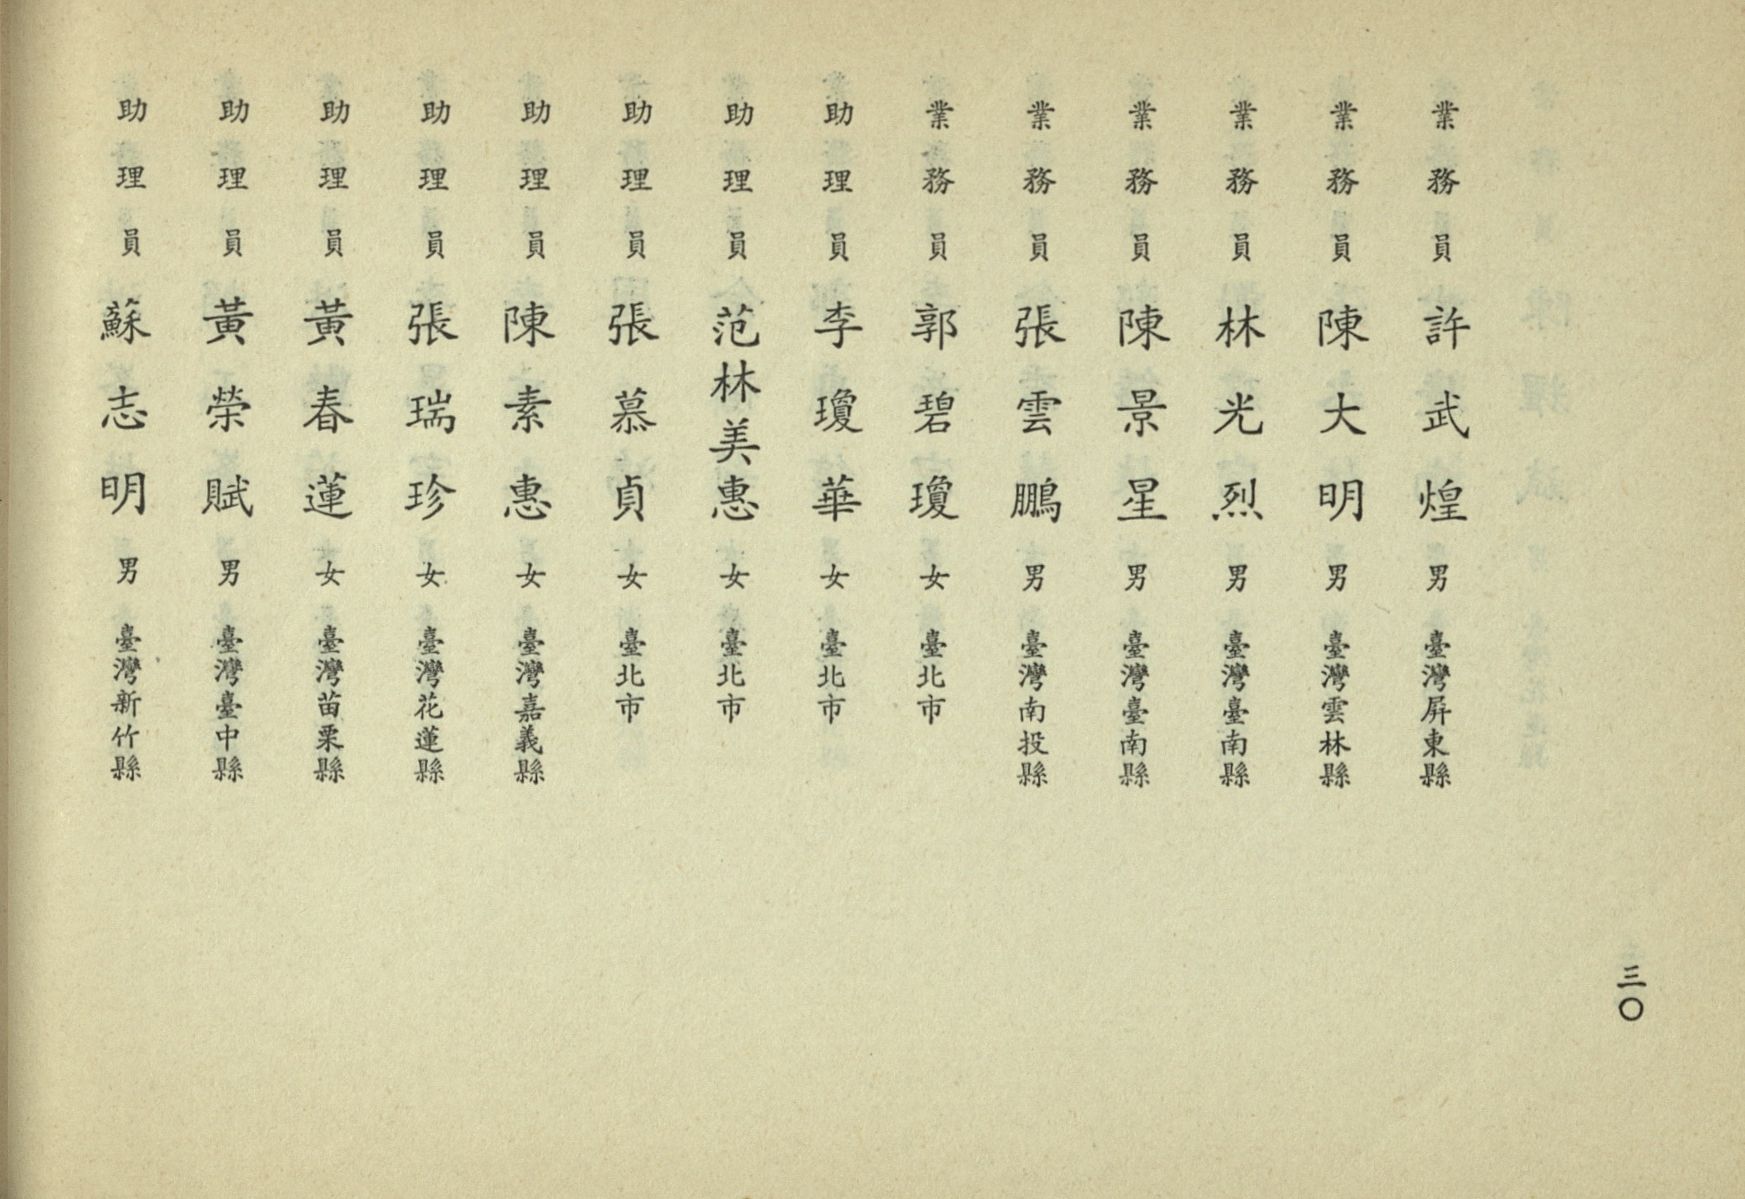 業務員 許武煌 男 臺灣屏東縣
業務員 陳大明 男 臺灣雲林縣
業務員 林光烈 男 臺灣臺南縣
業務員 陳景星 男 臺灣臺南縣
業務員 張雲鵬 男 臺灣南投縣
業務員 郭碧瓊 女 臺北市
助理員 李瓊華 女 臺北市
助理員 范林美惠 女 臺北市
助理員 張慕貞 女 臺北市
助理員 陳素惠 女 臺灣嘉義縣
助理員 張瑞珍 女 臺灣花蓮縣
助理員 黃春蓮 女 臺灣苗栗縣
助理員 黃榮賦 男 臺灣臺中縣
助理員 蘇志明 男 臺灣新竹縣
三〇